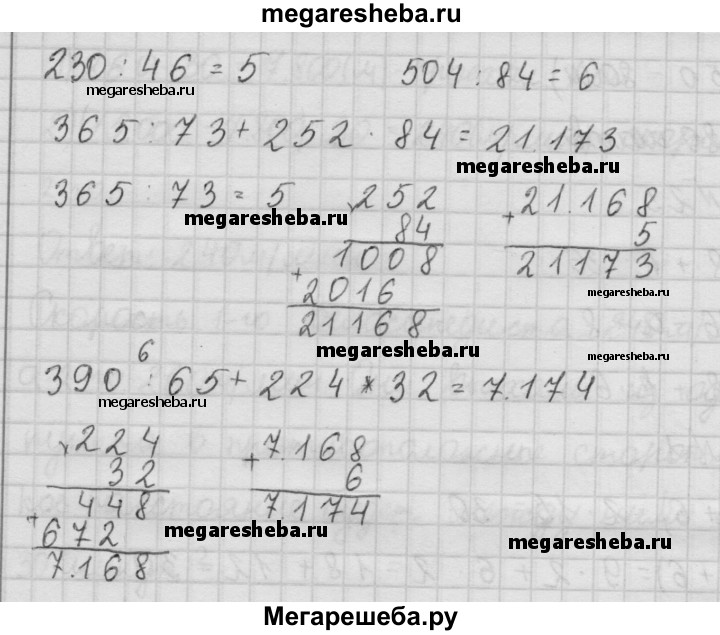 megaresheba.ru
230 : 46 = 5 504 : 84 = 6
megaresheba.ru
365 : 73 + 252 · 84 = 21.173
megaresheba.ru
365 : 73 = 5 × 252 + 21.168
megaresheba.ru 84 5
1008 21173
+ 2016 megaresheba.ru
21168
megaresheba.ru
6
390 : 65 + 224 * 32 = 7.174
megaresheba.ru
× 224 + 7.168
32 6
448 7174
+ 672 megaresheba.ru megaresheba.ru
7.168
Мегарешеба.ру